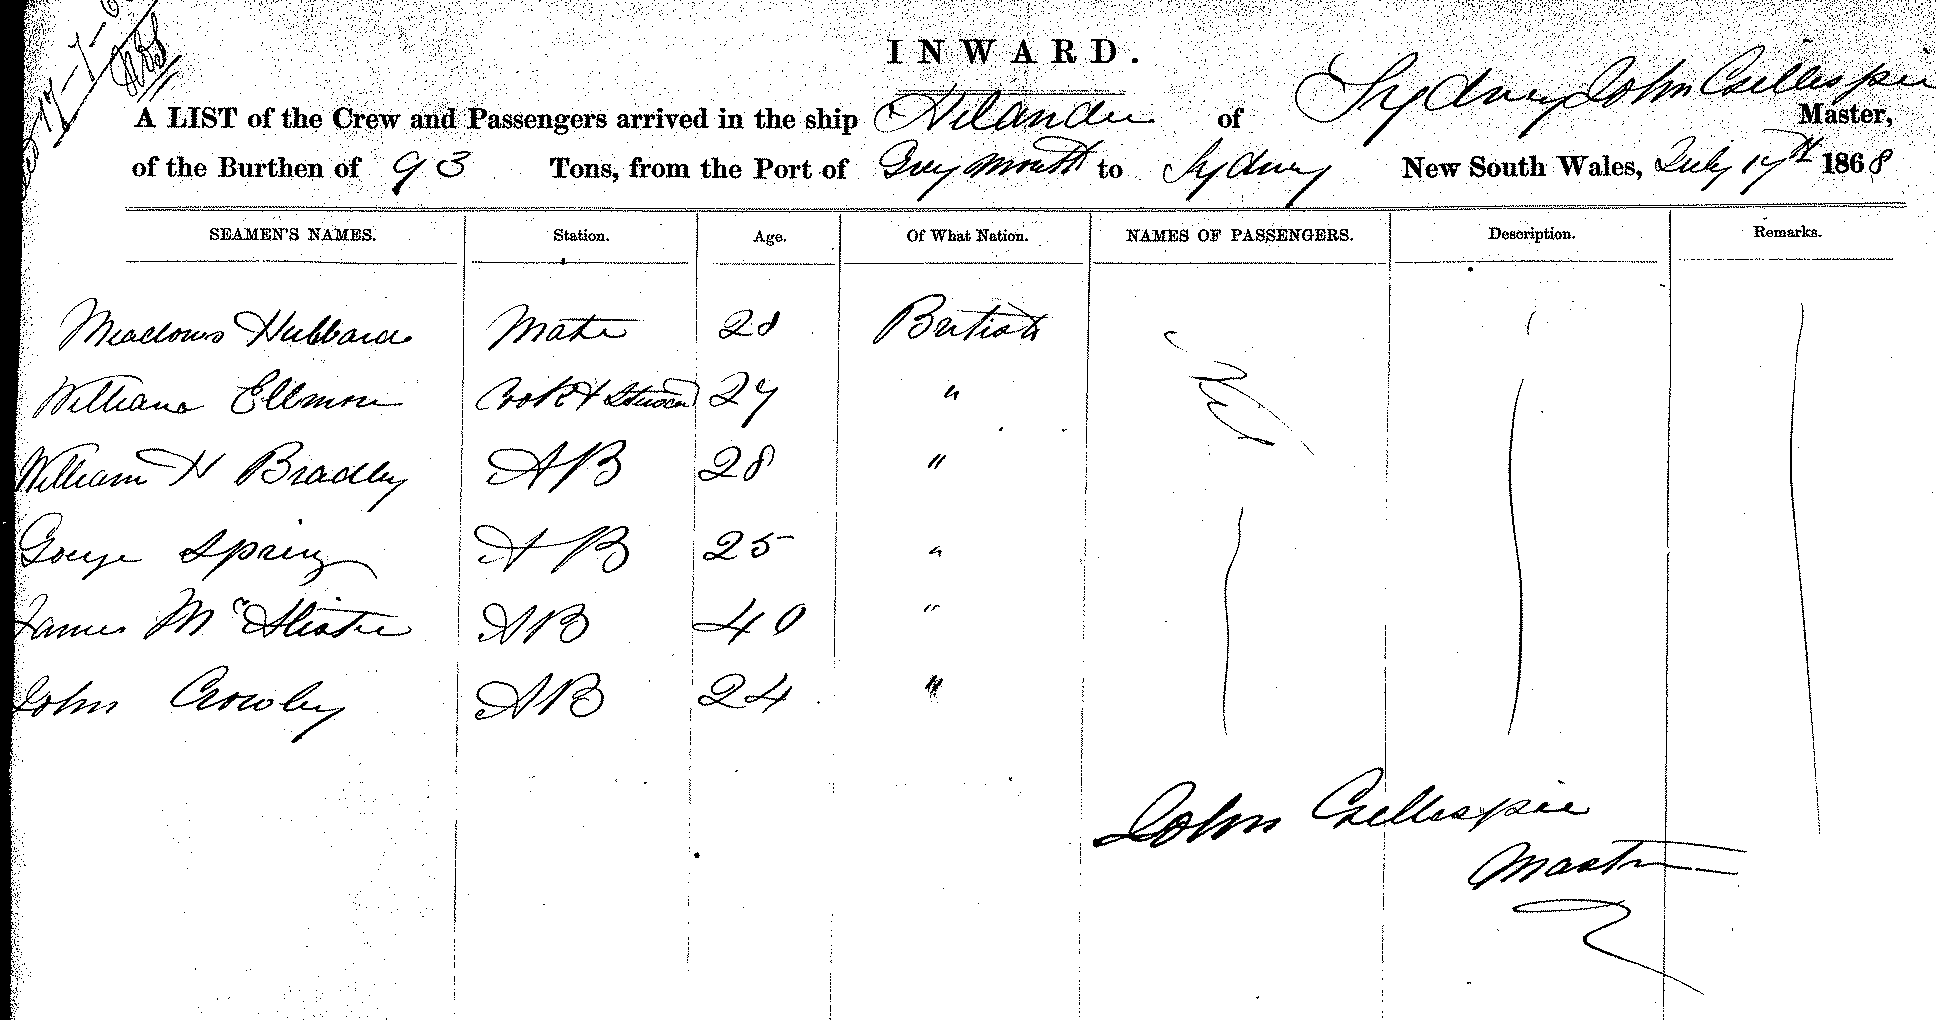 INWARD.
A LIST of the Crew and Passengers arrived in the ship of Sydney John Gillespie Master,
of the Burthen of 93 Tons, from the Port of Grey mouth to Sydney New South Wales, July 17th 1868
SEAMEN'S NAMES. Station. Age. Of What Nation. NAMES OF PASSENGERS. Description. Remarks.
Meadows Hubbard Mate 28 British
William Ellmore Cook & 27 "
William H Bradley AB 28 "
George Spring AB 25 "
James AB 40 "
John Crowley AB 24 "
John Gillespie
Master